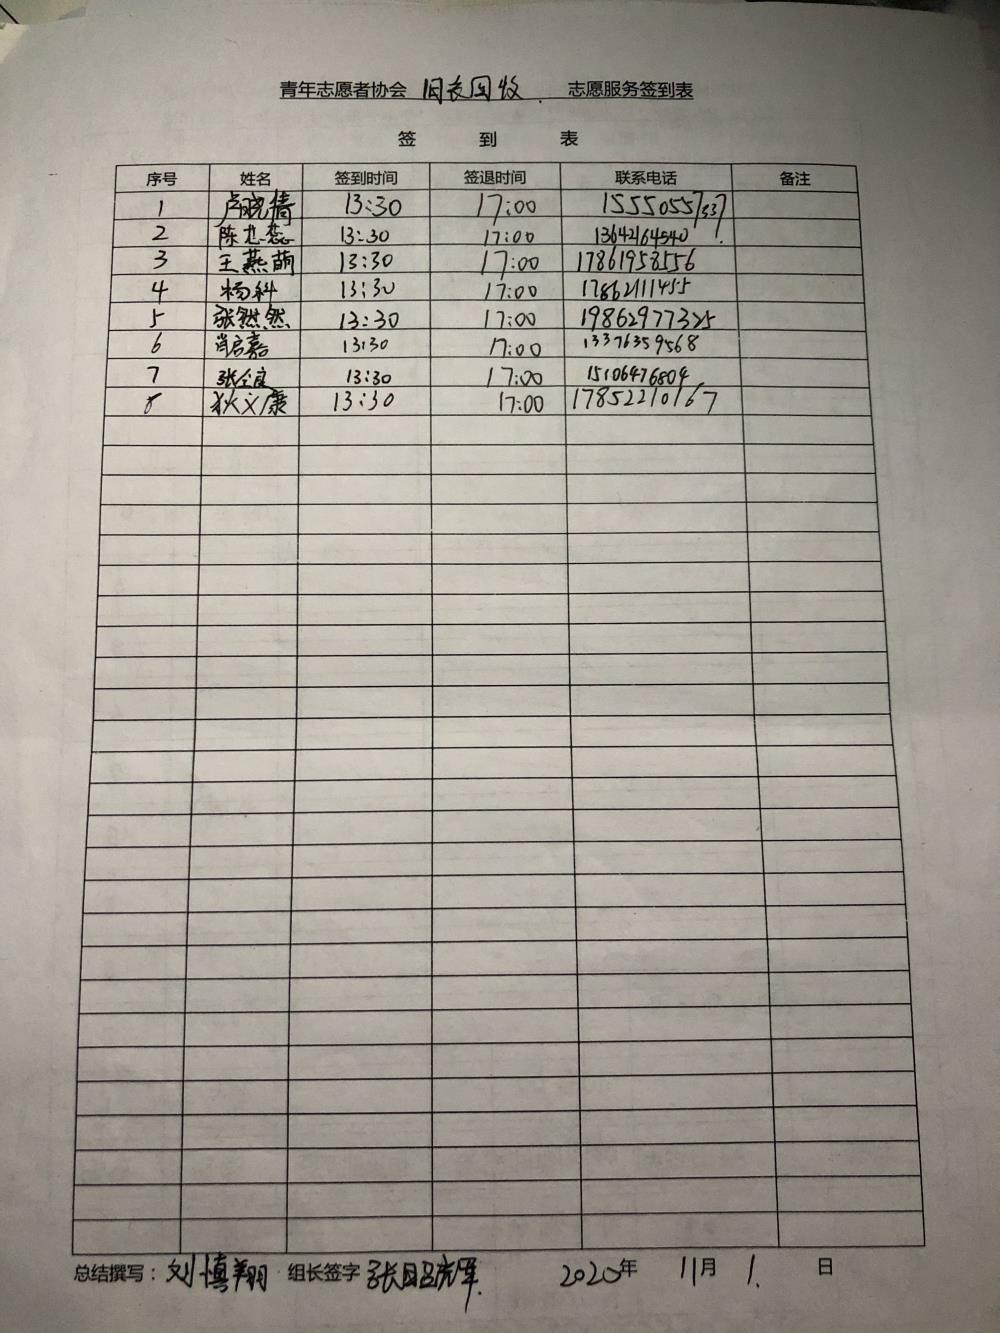 青年志愿者协会 旧衣回收 志愿服务签到表
签 到 表
序号 姓名 签到时间 签退时间 联系电话 备注
1 卢晓倩 13:30 17:00 15550557337
2 陈 蕊 13:30 17:00 13642164540
3 王燕萌 13:30 17:00 17861958556
4 杨科 13:30 17:00 17862111455
5 张然 13:30 17:00 19862977325
6 肖启嘉 13:30 17:00 13376359568
7 张 13:30 17:00 15106476804
8 狄义康 13:30 17:00 17852210167
总结撰写：刘慎翔 组长签字 张 2020年 11月 1 日